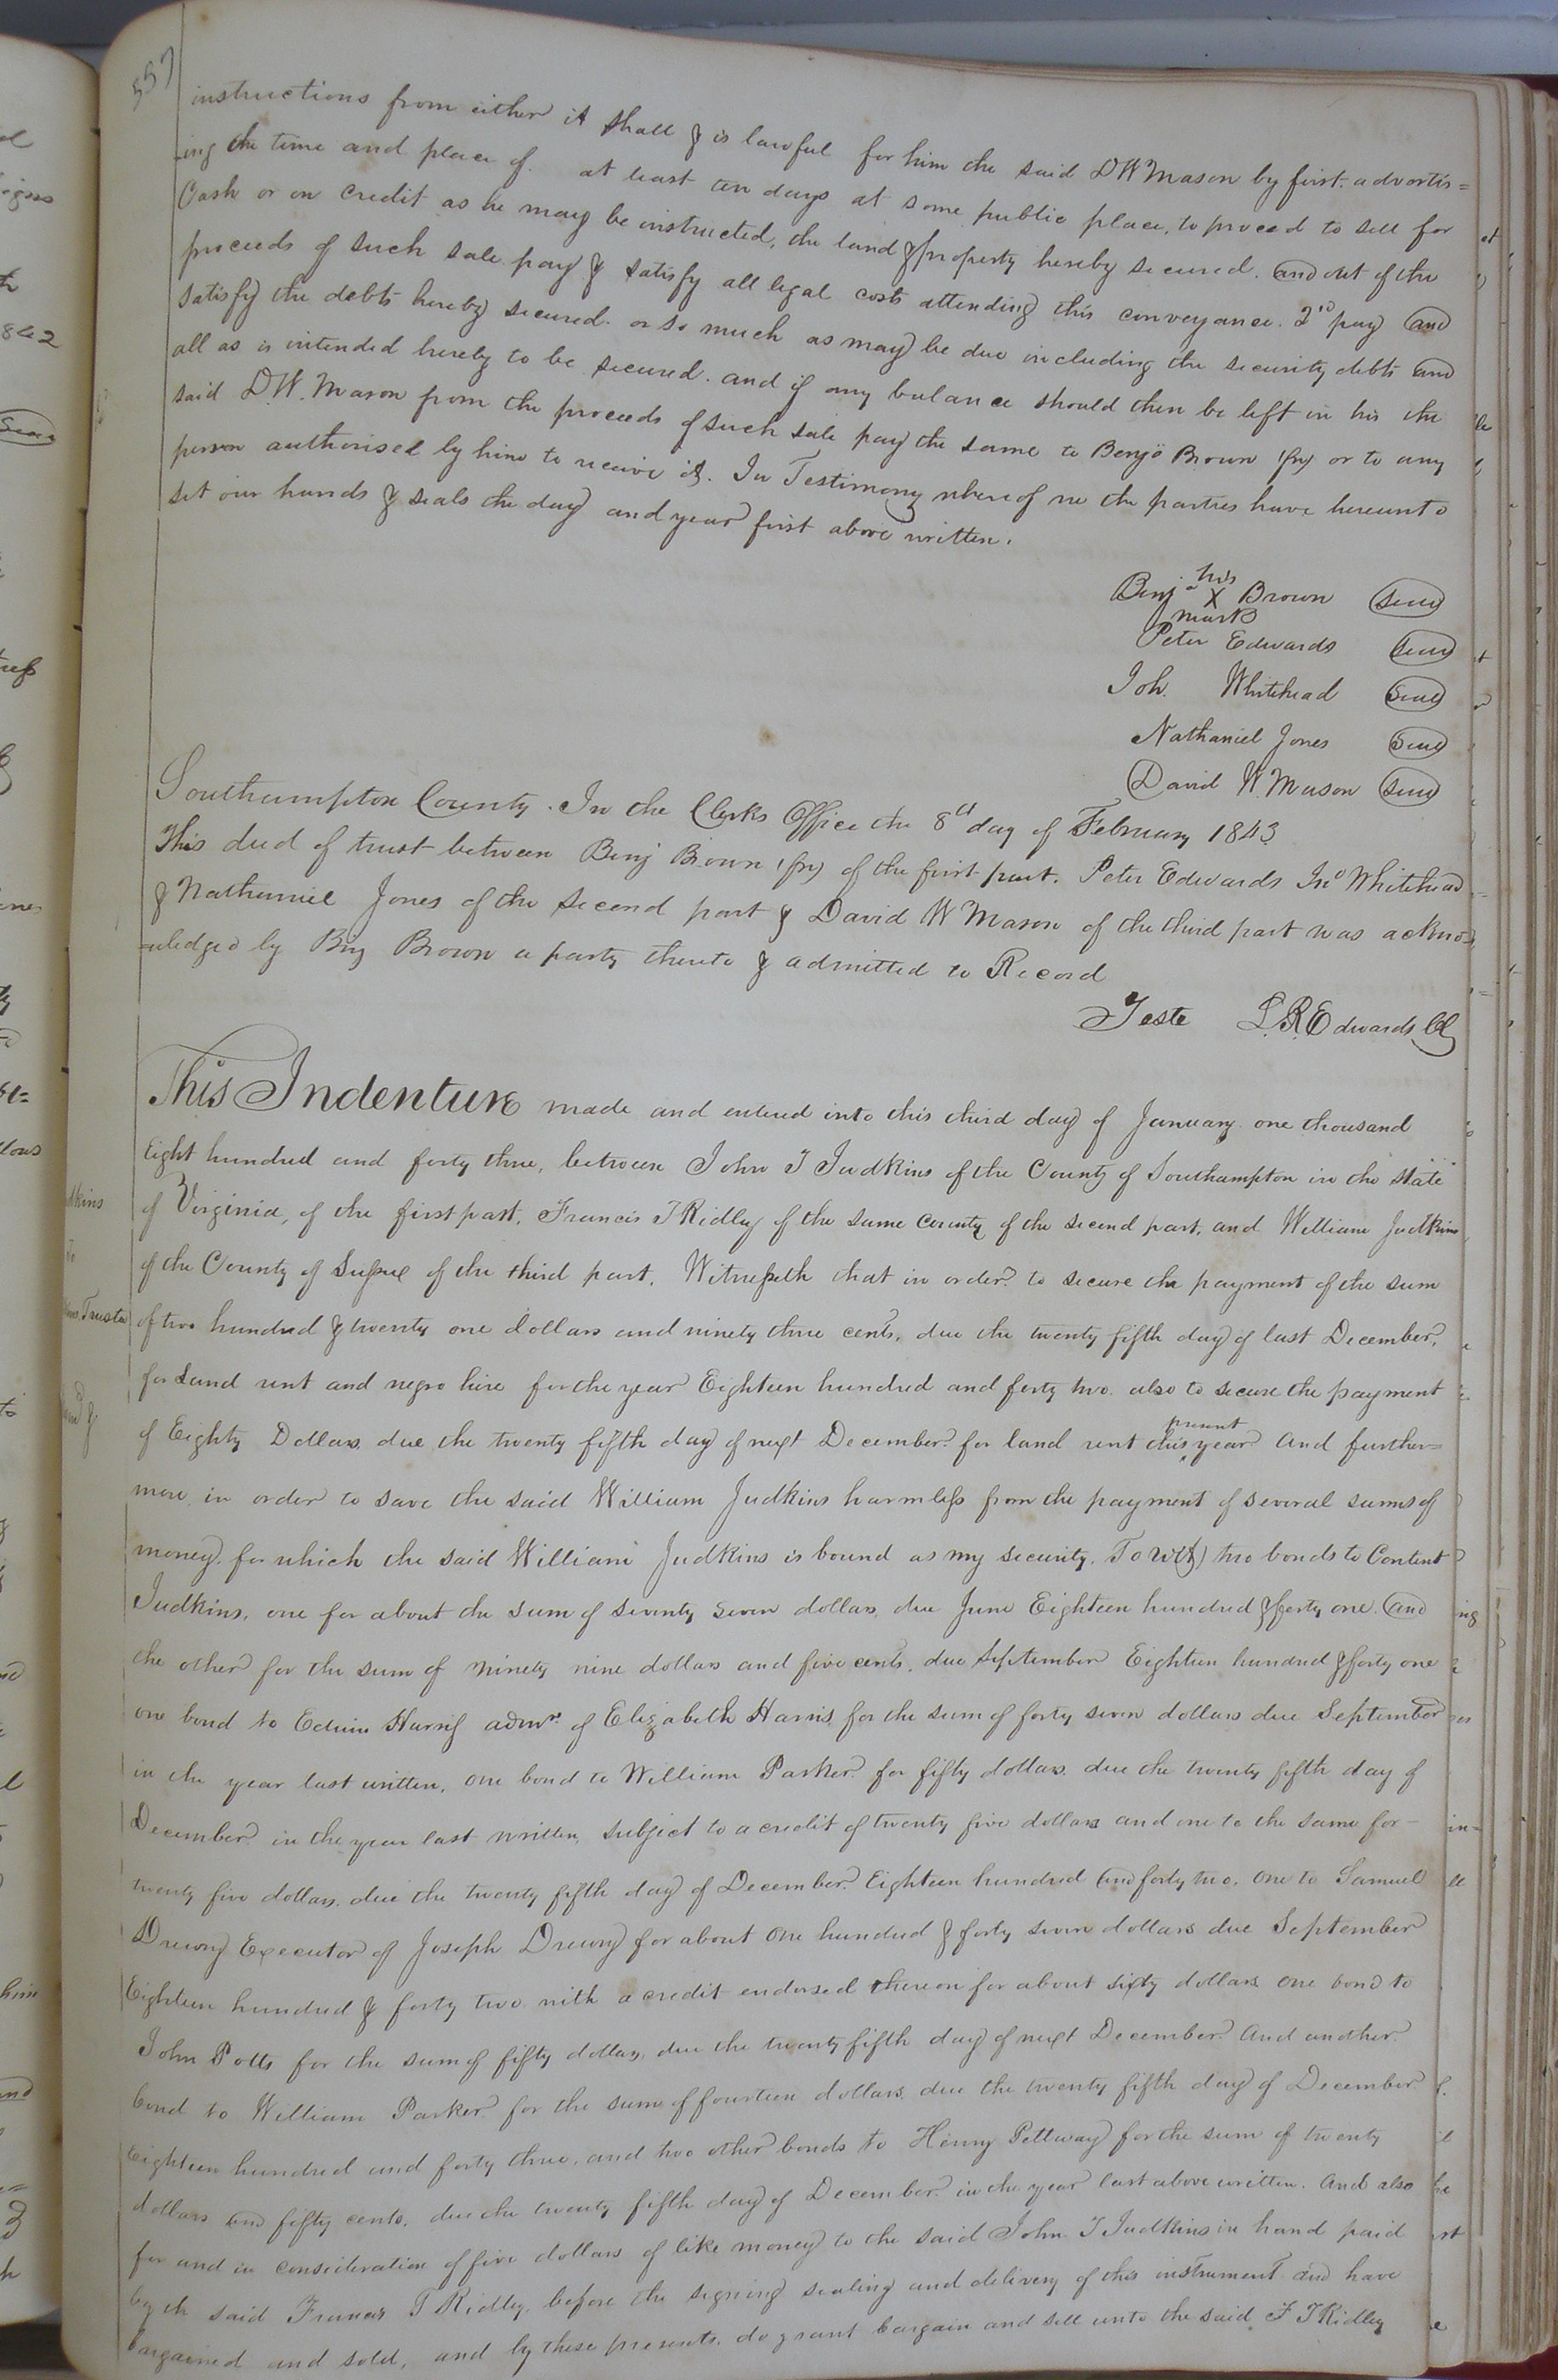 557
instructions from either it shall & is lawful for him the said D W Mason by first advertis=
ing the time and place of. at least ten days at some public place, to proceed to sell for
Cash or on credit as he may be instructed, the land & property hereby secured. and out of the
proceeds of such sale pay & satisfy all legal costs attending this conveyance. 2nd pay and
satisfy the debts hereby secured. or so much as may be due including the security debts and
all as is intended hereby to be secured. and if any balance should then be left in his the
said D. W. Mason from the proceeds of such sale pay the same to Benja Brown (fn) or to any
person authorised by him to receive it. In Testimony whereof we the parties have hereunto
set our hands & seals the day and year first above written.
his
Benja X Brown Seal
mark
Peter Edwards Seal
Joh. Whitehead Seal
Nathaniel Jones Seal
David W. Mason Seal
Southampton County. In the Clerks Office the 8th day of February 1843
This deed of trust between Benj Brown (fn) of the first part. Peter Edwards Jno Whitehead
& Nathaniel Jones of the second part & David W Mason of the third part was ackno=
=wledged by Benj Brown a party thereto & admitted to Record
Teste L. R. Edwards Cl
This Indenture made and entered into this third day of January one thousand
Eight hundred and forty three, between John T Judkins of the County of Southampton in the state
of Virginia, of the first part, Francis T Ridley of the same County of the second part, and William Judkins
of the County of Sussex of the third part. Witnesseth that in order to secure the payment of the sum
of two hundred & twenty one dollars and ninety three cents, due the twenty fifth day of last December,
for Land rent and negro hire for the year Eighteen hundred and forty two also to secure the payment
of Eighty Dollars, due the twenty fifth day of next December for land rent this present year And further=
more in order to save the said William Judkins harmless from the payment of several sums of
money, for which the said William Judkins is bound as my security, To wit) two bonds to Content
Judkins, one for about the sum of seventy seven dollars, due June Eighteen hundred & forty one. and
the other for the sum of ninety nine dollars and five cents, due September Eighteen hundred & forty one
one bond to Edwin Harris admr. of Elizabeth Harris, for the sum of forty seven dollars due September
in the year last written, one bond to William Parker for fifty dollars due the twenty fifth day of
December in the year last written, subject to a credit of twenty five dollars and one to the same for-
twenty five dollars, due the twenty fifth day of December Eighteen hundred and forty two, one to Samuel
Drewry Executor of Joseph Drewry for about One hundred & forty seven dollars due September
Eighteen hundred & forty two with a credit endorsed thereon for about sixty dollars one bond to
John Potts for the sum of fifty dollars, due the twenty fifth day of next December And another
bond to William Parker for the sum of fourteen dollars, due the twenty fifth day of December
Eighteen hundred and forty three, and two other bonds to Henry Pettway for the sum of twenty
dollars and fifty cents, due the twenty fifth day of December in the year last above written. And also
for and in consideration of five dollars of like money to the said John T Judkins in hand paid
by the said Francis T Ridley, before the signing sealing and delivery of this instrument and have
bargained and sold, and by these presents, do grant bargain and sell unto the said F T Ridley